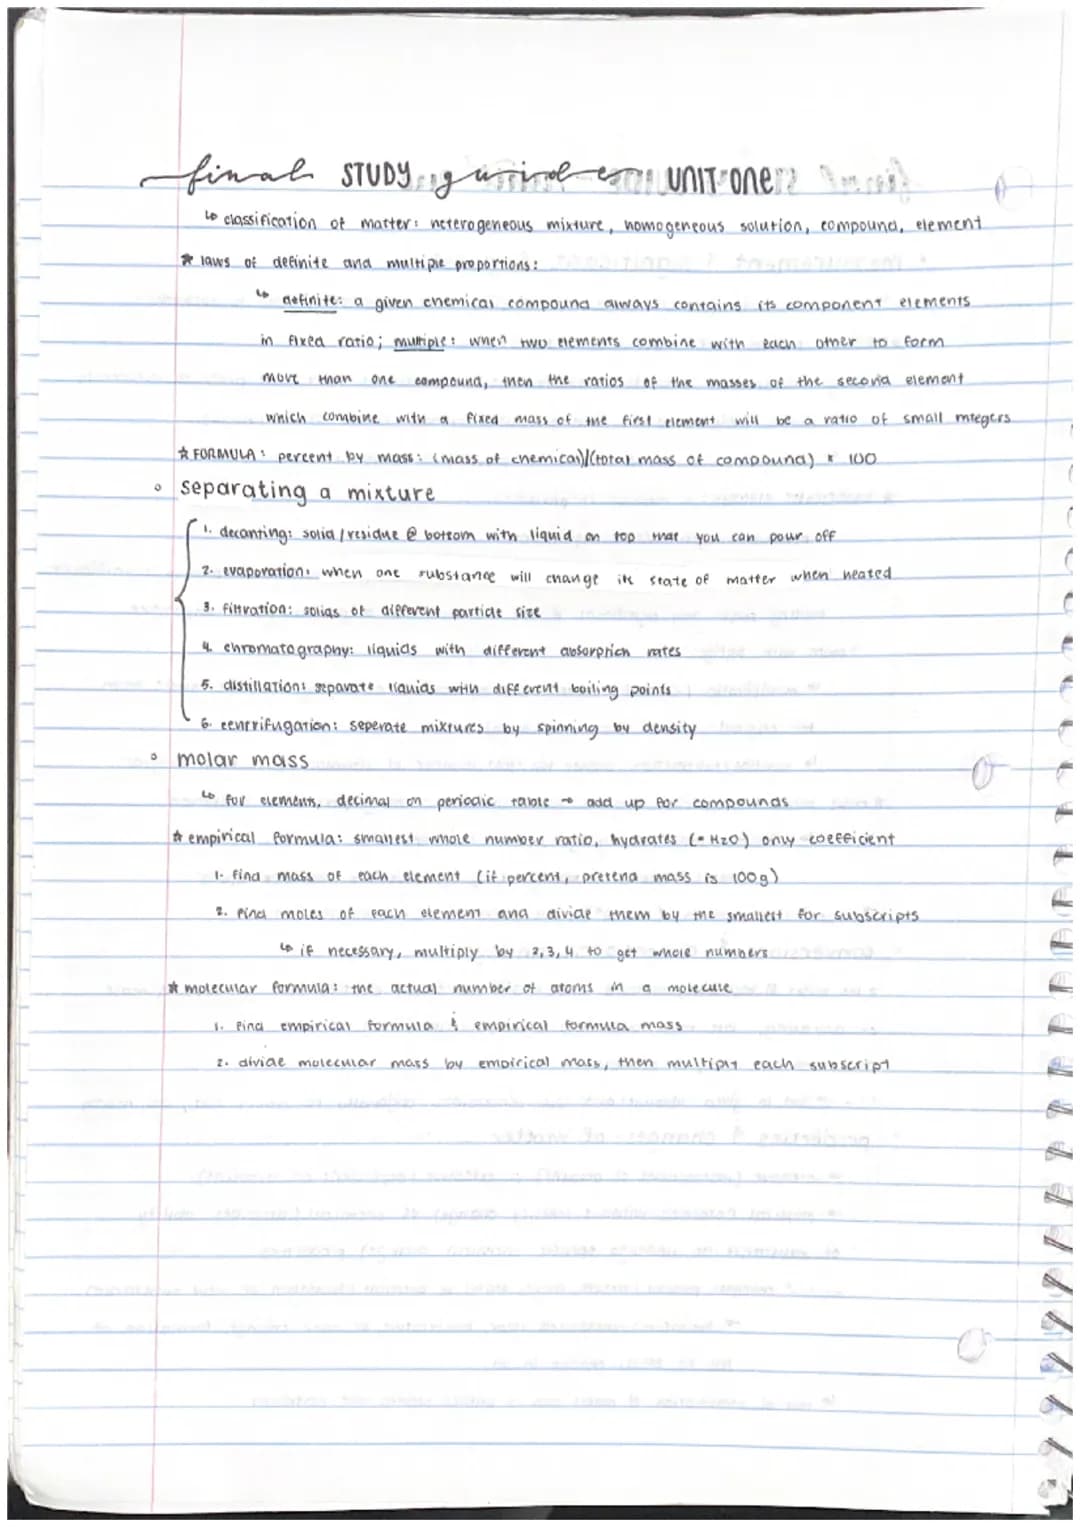 final STUDY guide UNIT ONE
↳ classification of matter: heterogeneous mixture, homogeneous solution, compound, element
☆ laws of definite and multiple proportions:
↳ definite: a given chemical compound always contains its component elements
in fixed ratio; multiple: when two elements combine with each other to form
more than one compound, then the ratios of the masses of the second element
which combine with a fixed mass of the first element will be a ratio of small integers
☆ FORMULA: percent by mass: (mass of chemical)/(total mass of compound) × 100
◦ separating a mixture
1. decanting: solid/residue @ bottom with liquid on top that you can pour off
2. evaporation: when one substance will change its state of matter when heated
3. filtration: solids of different particle size
4. chromatography: liquids with different absorption rates
5. distillation: separate liquids with different boiling points
6. centrifugation: seperate mixtures by spinning by density
◦ molar mass
↳ for elements, decimal on periodic table → add up for compounds
☆ empirical formula: smallest whole number ratio, hydrates (• H2O) only coefficient
1. find mass of each element (if percent, pretend mass is 100g)
2. find moles of each element and divide them by the smallest for subscripts
↳ if necessary, multiply by 2,3,4 to get whole numbers
☆ molecular formula: the actual number of atoms in a molecule
1. find empirical formula & empirical formula mass
2. divide molecular mass by empirical mass, then multiply each subscript